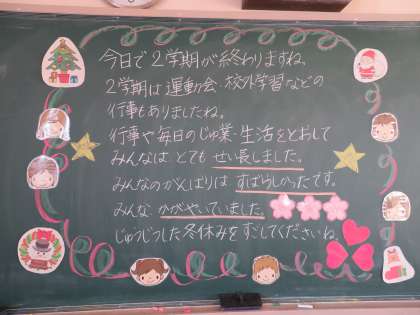 今日で2学期が終わりますね。
2学期は運動会・校外学習などの
行事もありましたね。
行事や毎日のじゅ業・生活をとおして
みんなはとてもせい長しました。
みんなのがんばりはすばらしかったです。
みんなかがやいていました。
じゅうじつした冬休みをすごしてくださいね。